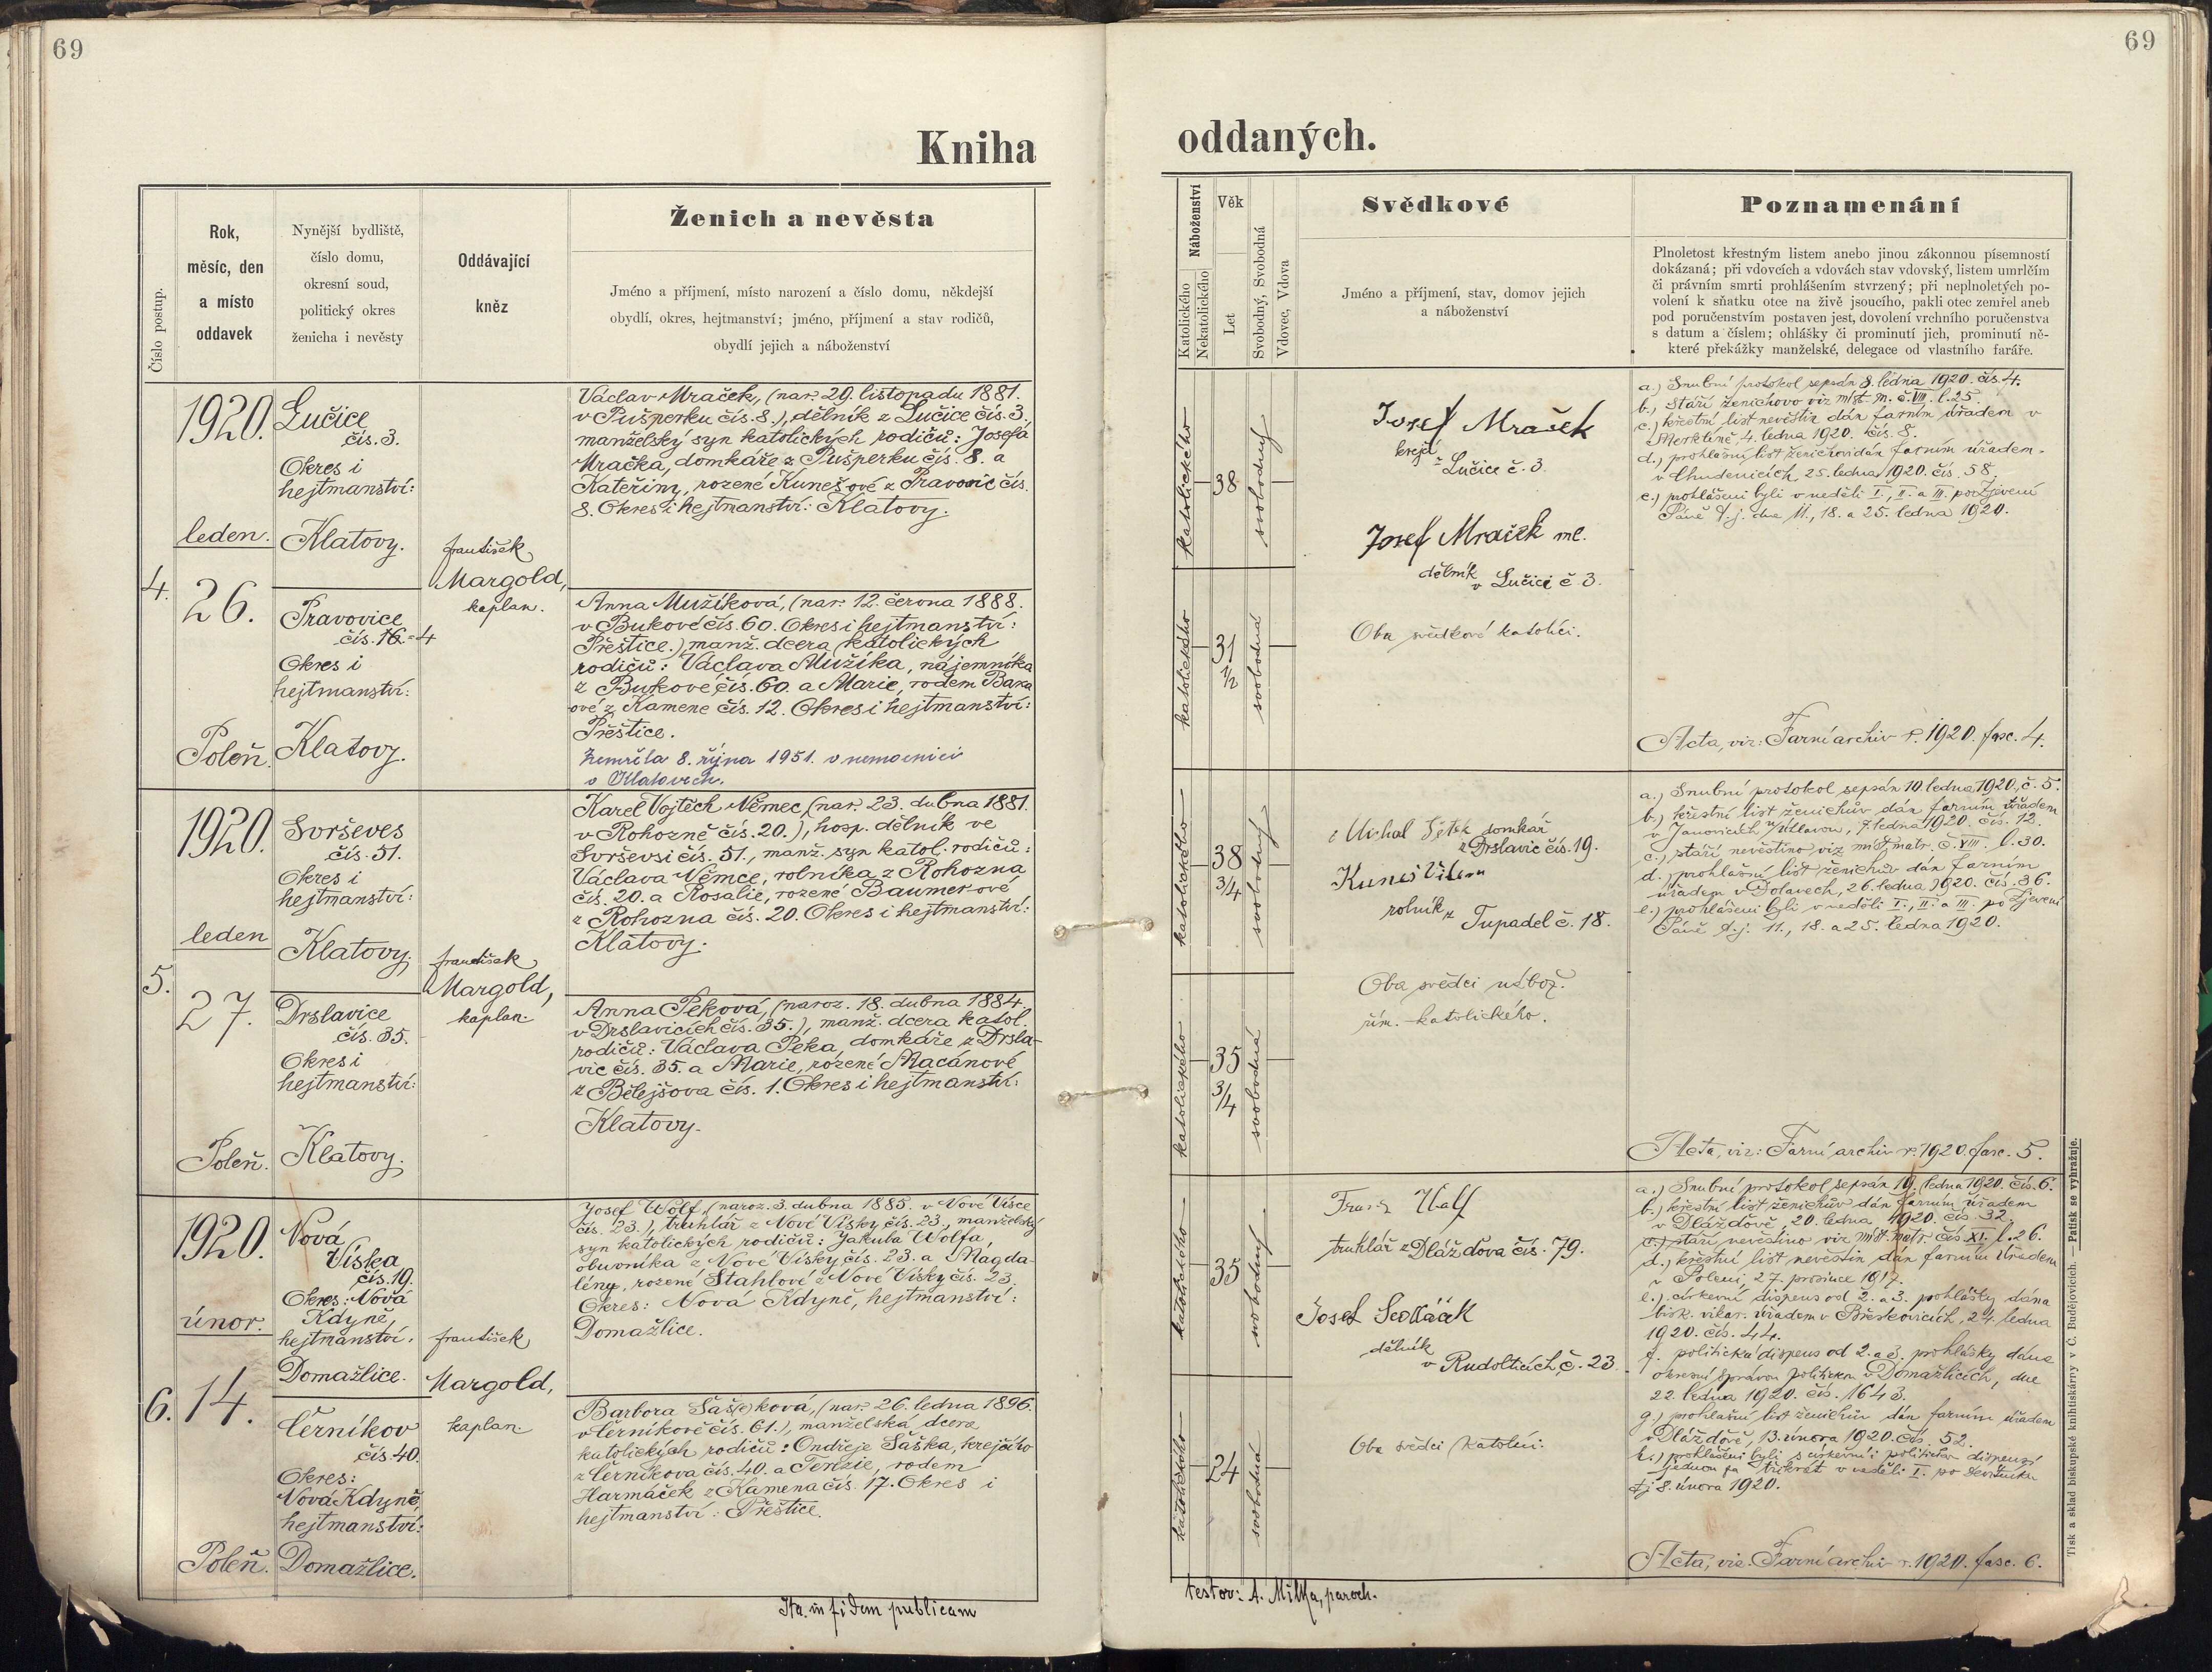 69
69
Kniha
oddaných.
Číslo postup.
Rok,
měsíc, den
a místo
oddavek
Nynější bydliště,
číslo domu,
okresní soud,
politický okres
ženicha i nevěsty
Oddávající
kněz
Ženich a nevěsta
Jméno a příjmení, místo narození a číslo domu, někdejší
obydlí, okres, hejtmanství; jméno, příjmení a stav rodičů,
obydlí jejich a náboženství
Náboženství
Katolického
Nekatolického
Věk
Let
Svobodný, Svobodná
Vdovec, Vdova
Svědkové
Jméno a příjmení, stav, domov jejich
a náboženství
Poznamenání
Plnoletost křestným listem anebo jinou zákonnou písemností
dokázaná; při vdovcích a vdovách stav vdovský, listem umrlčím
či právním smrti prohlášením stvrzený; při neplnoletých po-
volení k sňatku otce na živě jsoucího, pakli otec zemřel aneb
pod poručenstvím postaven jest, dovolení vrchního poručenstva
s datum a číslem; ohlášky či prominutí jich, prominutí ně-
které překážky manželské, delegace od vlastního faráře.
4.
1920.
leden.
26.
Poleň.
Lučice
čís. 3.
Okres i
hejtmanství:
Klatovy.
Pravovice
čís. 16=4
Okres i
hejtmanství:
Klatovy.
František
Margold,
kaplan.
Václav Mraček, (nar. 29. listopadu 1881.
v Pušperku čís. 8.), dělník z Lučice čís. 3.,
manželský syn katolických rodičů: Josefa
Mračka, domkáře z Pušperku čís. 8. a
Kateřiny, rozené Kunešové z Pravovic čís.
8. Okres i hejtmanství: Klatovy.
Anna Mužíková, (nar. 12. června 1888.
v Bukové čís. 60. Okres i hejtmanství:
Přeštice.), manž. dcera katolických
rodičů: Václava Mužíka, nájemníka
z Bukové čís. 60. a Marie, rodem
ové z Kamene čís. 12. Okres i hejtmanství:
Přeštice.
Zemřela 8. října 1951. v nemocnici
v Klatovech.
katolického
38
svobodný
katolického
31
1/2
svobodná
Josef Mraček
krejčí
z Lučice č. 3.
Josef Mraček ml.
dělník
v Lučici č 3.
Oba svědkové katolíci.
a.) Snubní protokol sepsán 8. ledna 1920. čís. 4.
b.) Stáří ženichovo viz míst. m. č. VIII. l. 25.
c.) křestní list nevěstin dán farním úřadem v
Merklíně, 4. ledna 1920. čís. 8.
d.) prohlašní list ženichovi dán farním úřadem
v Chudenicích, 25. ledna 1920. čís. 58.
e.) prohlášeni byli v neděli I., II. a III. po Zjevení
Páně t. j. dne 11., 18. a 25. ledna 1920.
Acta, viz: Farní archiv r. 1920. fasc. 4.
5.
1920.
leden
27.
Poleň.
Svrševes
čís. 51.
Okres i
hejtmanství:
Klatovy.
Drslavice
čís. 35.
Okres i
hejtmanství:
Klatovy.
František
Margold,
kaplan.
Karel Vojtěch Němec, (nar. 23. dubna 1881.
v Rohozně čís. 20.), hosp. dělník ve
Svrševsi čís. 51., manž. syn katol. rodičů:
Václava Němce, rolníka z Rohozna
čís. 20. a Rosalie, rozené Baumerové
z Rohozna čís. 20. Okres i hejtmanství:
Klatovy.
Anna Peková, (naroz. 18. dubna 1884.
v Drslavicích čís. 35.), manž. dcera katol.
rodičů: Václava Peka, domkáře z Drsla-
vic čís. 35. a Marie, rozené Macánové
z Bělejšova čís. 1. Okres i hejtmanství:
Klatovy.
katolického
38
3/4
svobodný
katolického
35
3/4
svobodná
domkář
z Drslavic čís. 19.
Kuneš Vilém
rolník z
Tupadel č. 18.
Oba svědci nábož.
řím. katolického.
a.) Snubní protokol sepsán 10. ledna 1920., č. 5.
b.) křestní list ženichův dán farním úřadem
v Janovicích n/Úhlavou, 7. ledna 1920. čís. 12.
c.) stáří nevěstino viz míst. matr. č. VIII. l. 30.
d.) prohlašní list ženichův dán farním
úřadem v Dolanech, 26. ledna 1920. čís. 36.
e.) prohlášeni byli v neděli I., II. a III. po Zjevení
Páně t. j. 11., 18. a 25. ledna 1920.
Acta, viz: Farní archiv r. 1920. fasc. 5.
6.
1920.
únor.
14.
Poleň.
Nová
Víska
čís. 19.
Okres: Nová
Kdyně,
hejtmanství:
Domažlice.
Černíkov
čís. 40.
Okres:
Nová Kdyně,
hejtmanství:
Domažlice.
František
Margold,
kaplan.
Josef Wolf, (naroz. 3. dubna 1885. v Nové Vísce
čís. 23.), truhlář z Nové Vísky čís. 23., manželský
syn katolických rodičů: Jakuba Wolfa,
obuvníka z Nové Vísky čís. 23. a Magda-
lény, rozené Stahlové z Nové Vísky čís. 23.
Okres: Nová Kdyně, hejtmanství:
Domažlice.
Barbora Šáš(e)ková, (nar. 26. ledna 1896.
v Černíkově čís. 61.), manželská dcera
katolických rodičů: Ondřeje Šáška, krejčího
z Černíkova čís. 40. a Terezie, rodem
Harmáček z Kamena čís. 17. Okres i
hejtmanství: Přeštice.
katolického
35
svobodný
katolického
24
svobodná
Wolf
truhlář z Dlážďova čís. 79.
Josef Sedláček
dělník
v Rudolticích, č. 23.
Oba svědci katolíci.
a.) Snubní protokol sepsán 19. ledna 1920. čís. 6.
b.) křestní list ženichův dán farním úřadem
v Dlážďově, 20. ledna 1920. čís. 32.
c.) stáří nevěstino viz míst. matr. čís. XI. l. 26.
d.) křestní list nevěstin dán farním úřadem
v Poleni, 27. prosince 1917.
e.) církevní dispens od 2. a 3. prohlášky dána
bisk. vikar. úřadem v Běšťkovicích, 24. ledna
1920. čís. 44.
f. politická dispens od 2. a 3. prohlášky dána
okresní správou politickou v Domažlicích, dne
22. ledna 1920. čís. 1643.
g.) prohlašní list ženichův dán farním úřadem
v Dlážďově, 13. února 1920. čís. 52.
h.) prohlášeni byli s církevní i politickou dispensí
jednou za třikrát v neděli I. po Devítníku
tj 8. února 1920.
Acta, viz: Farní archiv r. 1920. fasc. 6.
Ita in fidem publicam
testor: A. Milka, paroch.
Tisk a sklad biskupské knihtiskárny v Č. Budějovicích. — Patisk se vyhražuje.